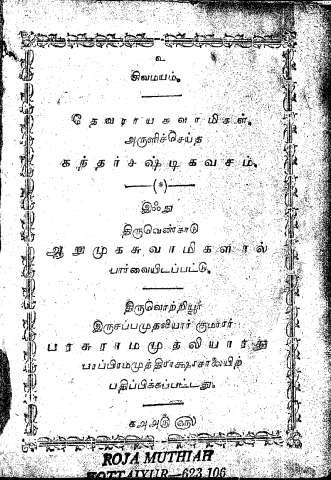 உ
சிவமயம்.
தேவராயசுவாமிகள்.
அருளிச்செய்த
கந்தர்சஷ்டிகவசம்.
இஃது
திருவெண்காடு
ஆறுமுகசுவாமிகளால்
பார்வையிடப்பட்டு.
திருவொற்றியூர்
இருசப்பமுதலியார் குமாரர்
பரசுராமமுதலியாரது
பரப்பிரமமுத்திராக்ஷரசாலையிற்
பதிப்பிக்கப்பட்டது.
ROJA MUTHIAH
KOTTAIYUR—623 106